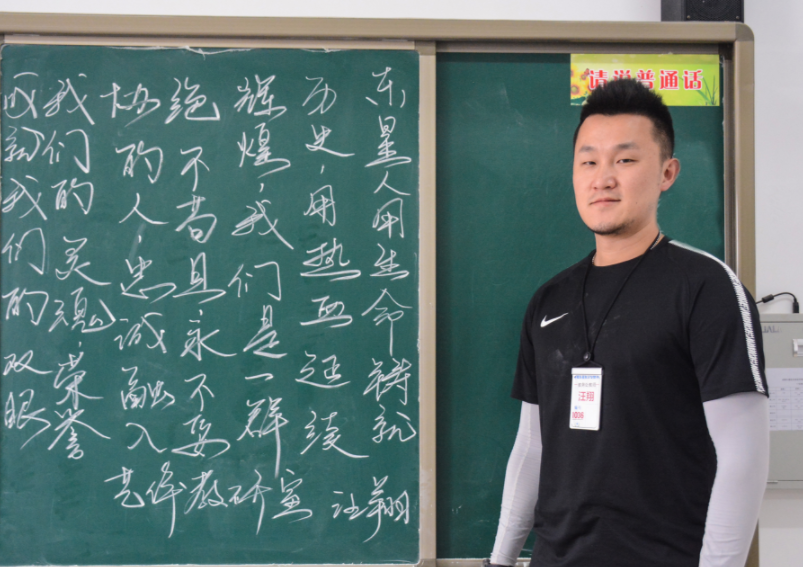 东星人用生命铸就
历史，用热血延续
辉煌，我们是一群
绝不苟且、永不妥
协的人，忠诚融入
我们的灵魂，荣誉
就我们的双眼
艺体教研室 汪翔
请说普通话
汪翔